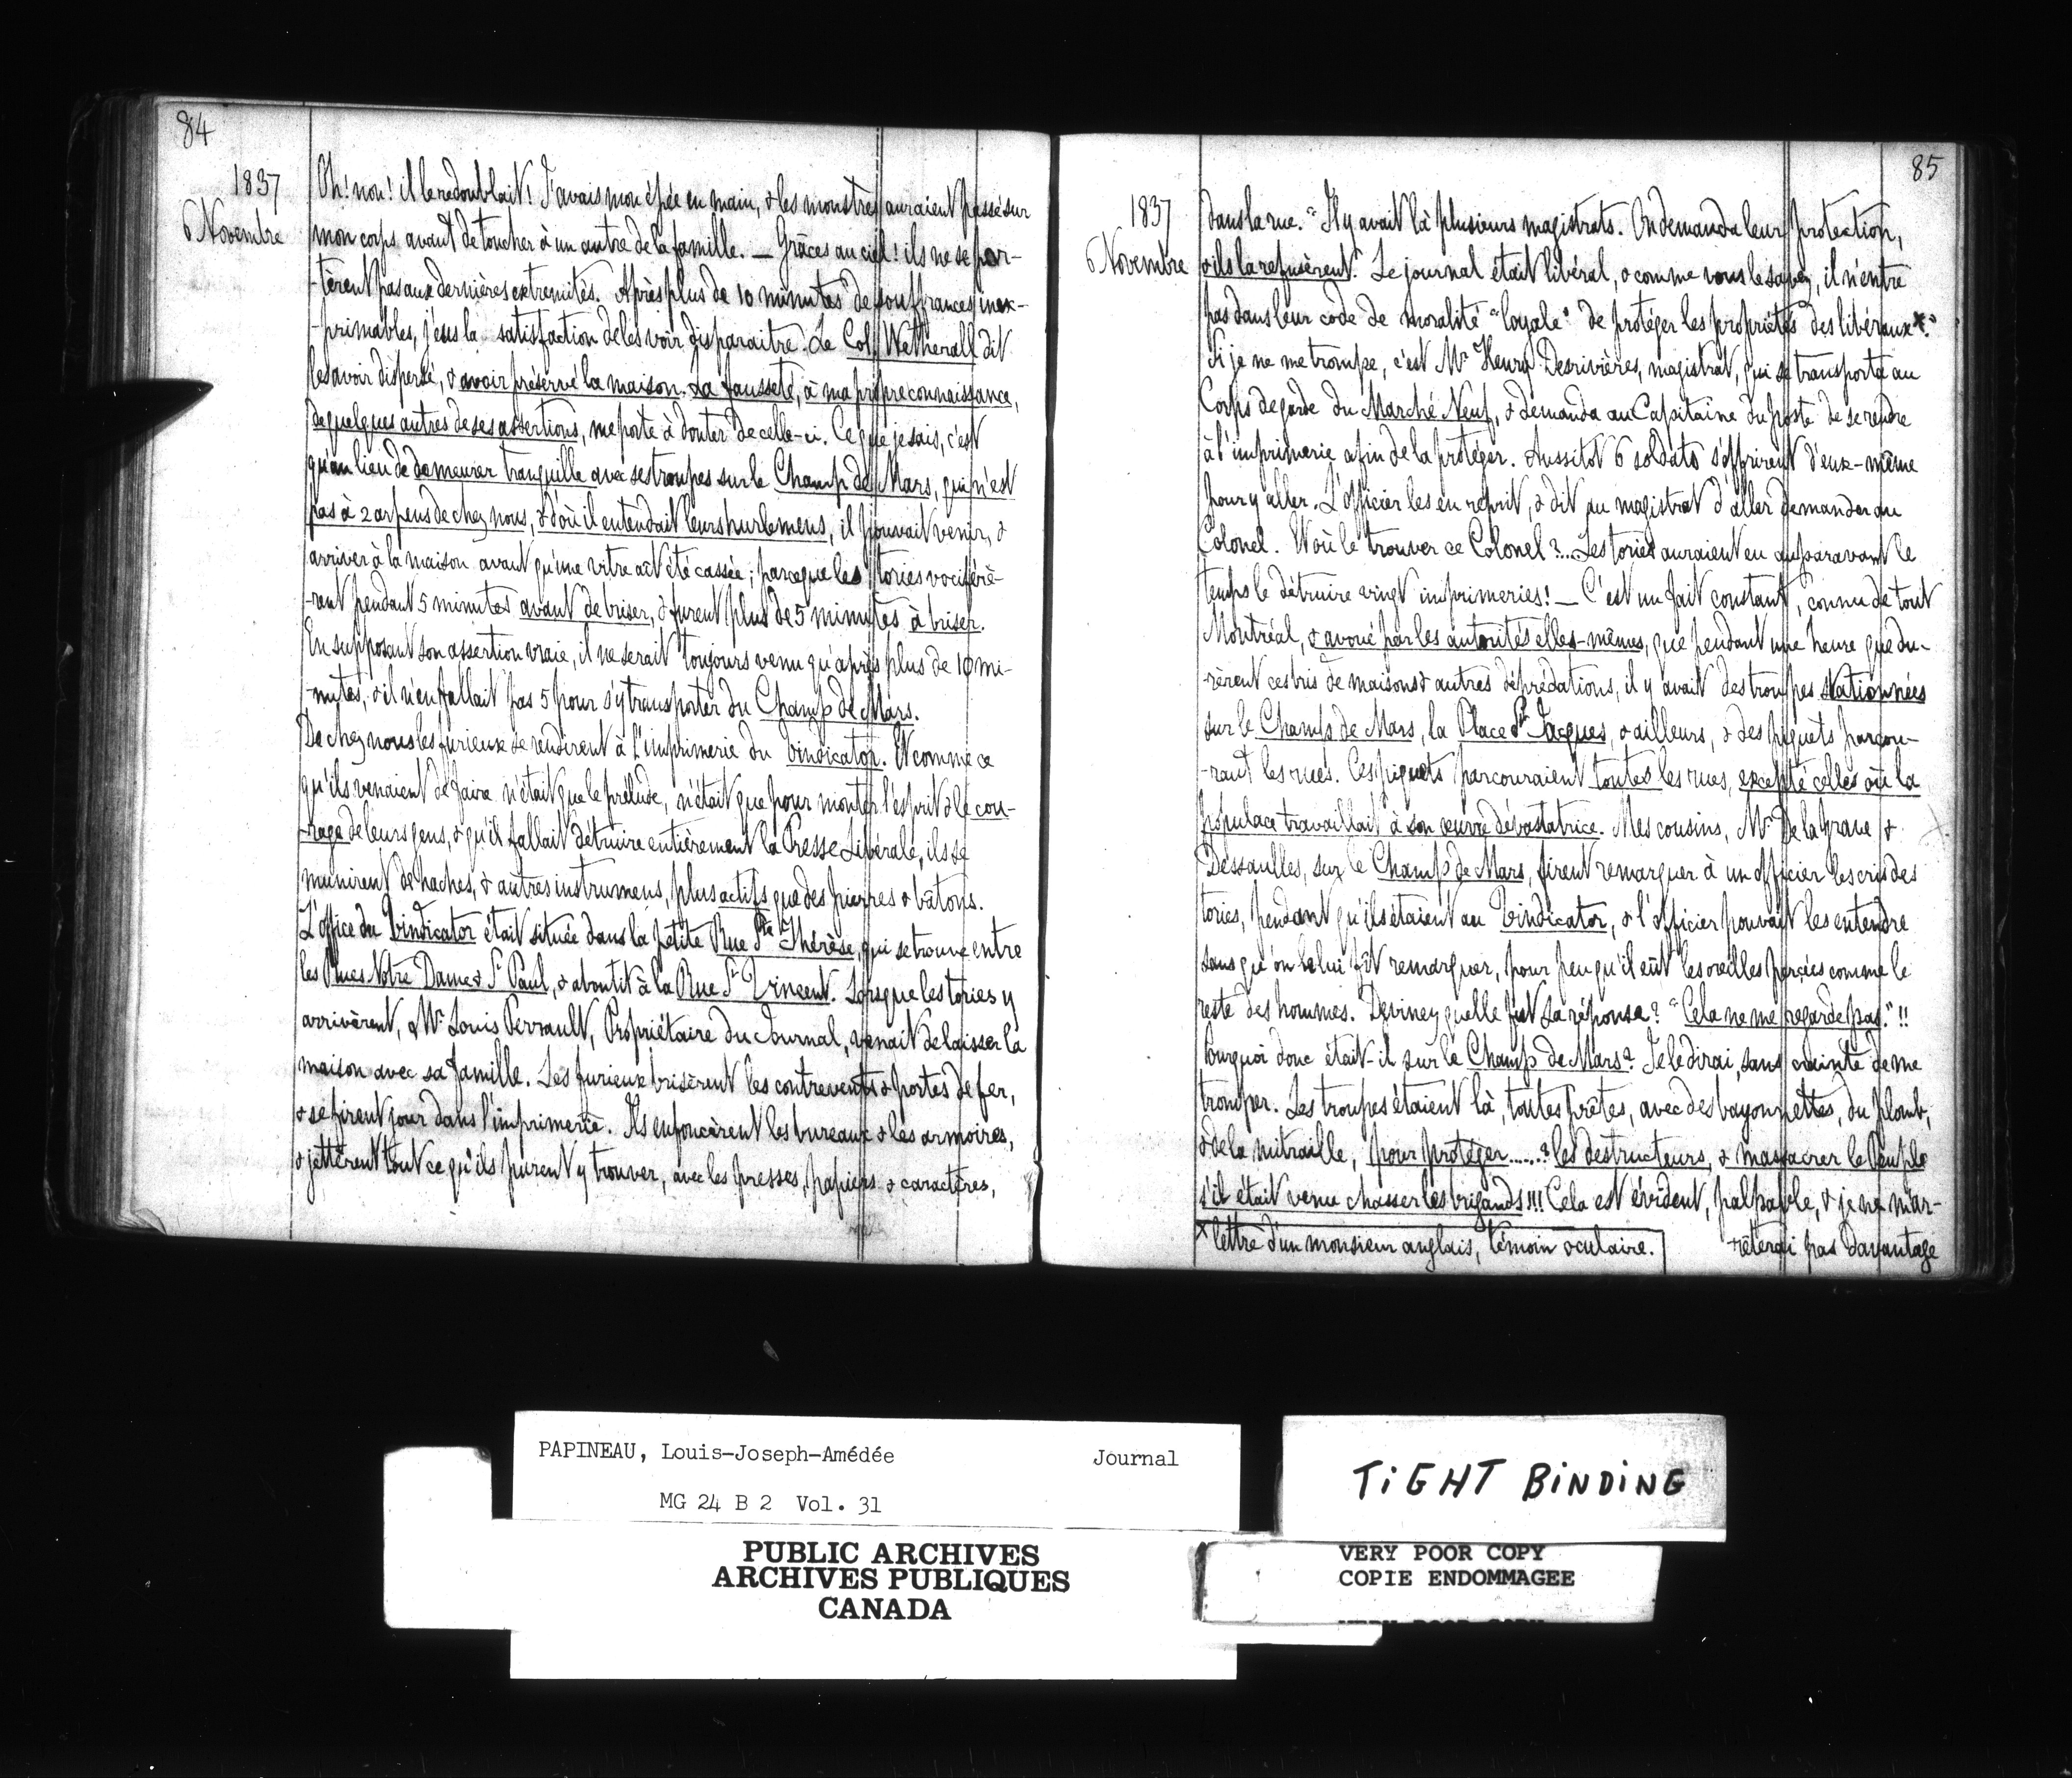 84
1837
6 Novembre
Oh! non! il le redoublait! J'avais mon épée en main, & les monstres auraient passé sur
mon corps avant de toucher à un autre de la famille. — Grâces au ciel! ils ne se por-
-tèrent pas aux dernières extremités. Après plus de 10 minutes de souffrances inex-
-primables, j'eus la satisfaction de les voir disparaitre. Le Col. Wetherall dit
les avoir dispersé, & avoir préservé la maison. La fausseté, à ma propre connaissance,
de quelques autres de ses assertions, me porte à douter de celle-ci. Ce que je sais, c'est
qu'au lieu de demeurer tranquille avec ses troupes sur le Champ de Mars, qui n'est
pas à 2 arpens de chez nous, & d'où il entendait leurs hurlemens, il pouvait venir, &
arriver à la maison avant qu'une vitre eût été cassée; parceque les tories vociférè-
-rent pendant 5 minutes avant de briser, & furent plus de 5 minutes à briser.
En supposant son assertion vraie, il ne serait toujours venu qu'après plus de 10 mi-
-nutes, & il n'en fallait pas 5 pour s'y transporter du Champ de Mars.
De chez nous les furieux se rendirent à l'imprimerie du Vindicator. Et comme ce
qu'ils venaient de faire n'était que le prélude, n'était que pour monter l'esprit & le cou-
-rage de leurs gens, & qu'il fallait détruire entièrement la Presse Libérale, ils se
munirent de haches, & autres instrumens, plus actifs que des pierres & bâtons.
L'office du Vindicator était située dans la petite Rue Ste Thérèse, qui se trouve entre
les Rues Notre Dame & St Paul, & aboutit à la Rue St Vincent. Lorsque les tories y
arrivèrent, Mr Louis Perrault, Propriétaire du Journal, venait de laisser la
maison avec sa famille. Les furieux brisèrent les contrevents & portes de fer,
& se firent jour dans l'imprimerie. Ils enfoncèrent les bureaux & les armoires,
& jettèrent tout ce qu'ils purent y trouver, avec les presses, papiers & caractères,
85
1837
6 Novembre
dans la rue. "Il y avait là plusieurs magistrats. On demanda leur protection,
& ils la refusèrent! Le journal était libéral, & comme vous le savez, il n'entre
pas dans leur code de moralité "loyale" de protéger les propriétés des libéraux*."
Si je ne me trompe, c'est Mr Henry Desrivières, magistrat, qui se transporta au
Corps de garde du Marché Neuf, & demanda au Capitaine du poste de se rendre
à l'imprimerie afin de la protéger. Aussitot 6 soldats s'offrirent d'eux-même
pour y aller. L'officier les en reprit, & dit au magistrat d'aller demander au
Colonel. Et où le trouver ce Colonel?... Les tories auraient eu auparavant le
temps de détruire vingt imprimeries! — C'est un fait constant, connu de tout
Montréal, & avoué par les autorités elles-mêmes, que pendant une heure que du-
-rèrent ces bris de maisons & autres déprédations, il y avait des troupes stationnées
sur le Champ de Mars, la Place St Jacques, & ailleurs, & des piquets parcou-
-rant les rues. Ces piquets parcouraient toutes les rues, excepté celles où la
populace travaillait à son œuvre dévastatrice. Mes cousins, Mr De la Grave &
Dessaulles, sur le Champ de Mars, firent remarquer à un officier les cris des
tories, pendant qu'ils étaient au Vindicator, & l'officier pouvait les entendre
sans qu'on le lui fît remarquer, pour peu qu'il eût les oreilles percées comme le
reste des hommes. Devinez quelle fut sa réponse? "Cela ne me regarde pas."!!
Pourquoi donc était-il sur le Champ de Mars? Je le dirai, sans crainte de me
tromper. Les troupes étaient là, toutes prêtes, avec des bayonnettes, du plomb,
& de la mitraille, pour protéger......? les destructeurs, & massacrer le Peuple
s'il était venu chasser les brigands!!! Cela est évident, palpable, & je ne m'ar-
-rêterai pas davantage
* lettre d'un monsieur anglais, témoin oculaire.
PAPINEAU, Louis-Joseph-Amédée Journal
MG 24 B 2 Vol. 31
PUBLIC ARCHIVES
ARCHIVES PUBLIQUES
CANADA
TiGHT BiNDiNG
VERY POOR COPY
COPIE ENDOMMAGEE
VERY POOR COPY